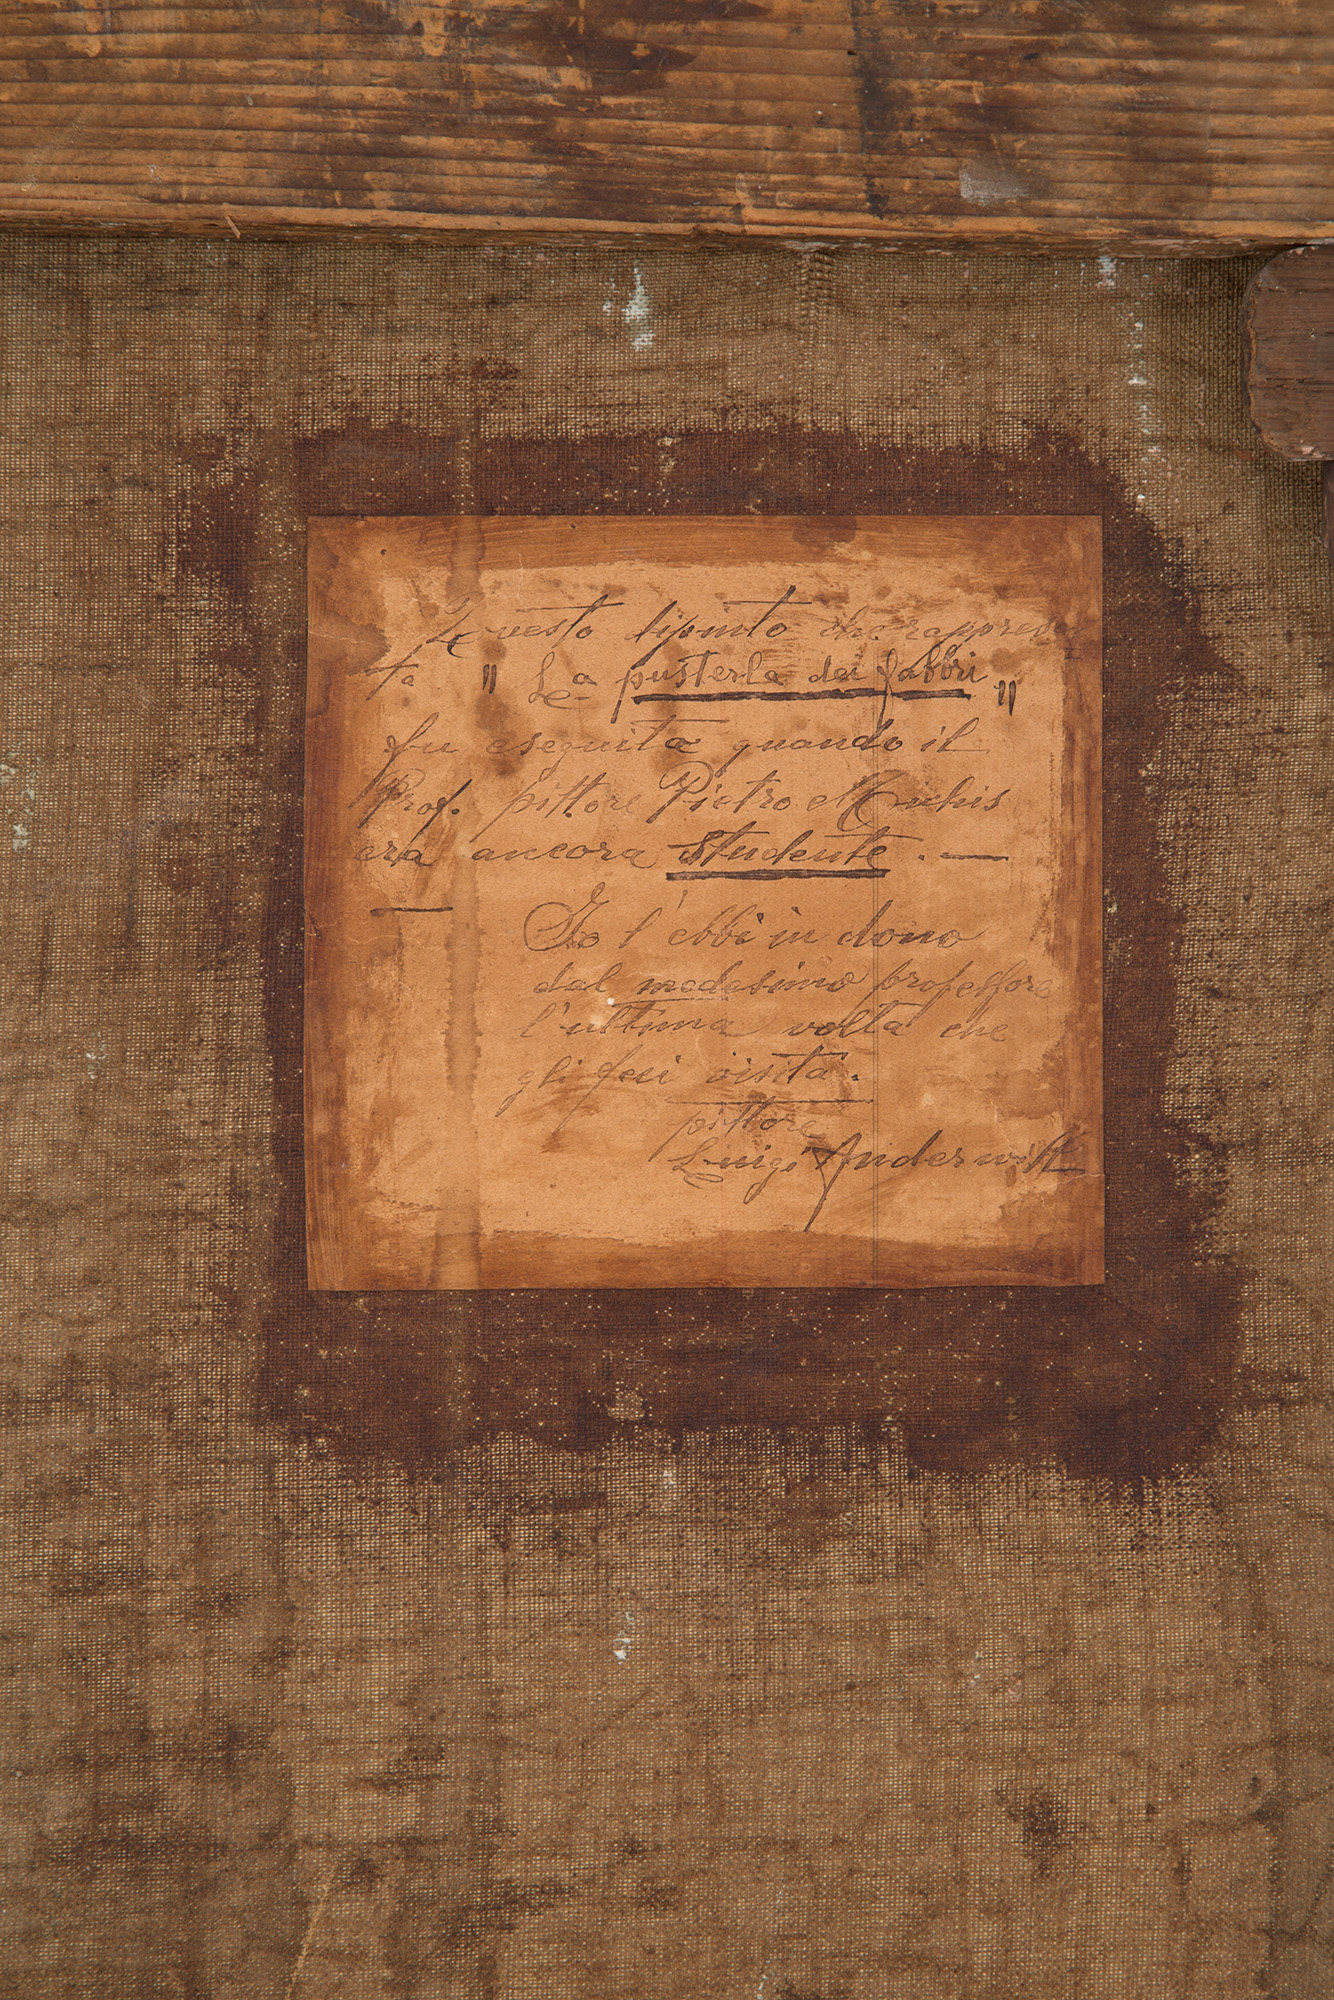 Questo dipinto che rappresen
ta " La pusterla dei fabbri "
fu eseguita quando il
Prof. pittore Pietro Michis
era ancora studente . —
Io l'ebbi in dono
dal medesimo professore
l'ultima volta che
gli feci visita.
pittore
Luigi